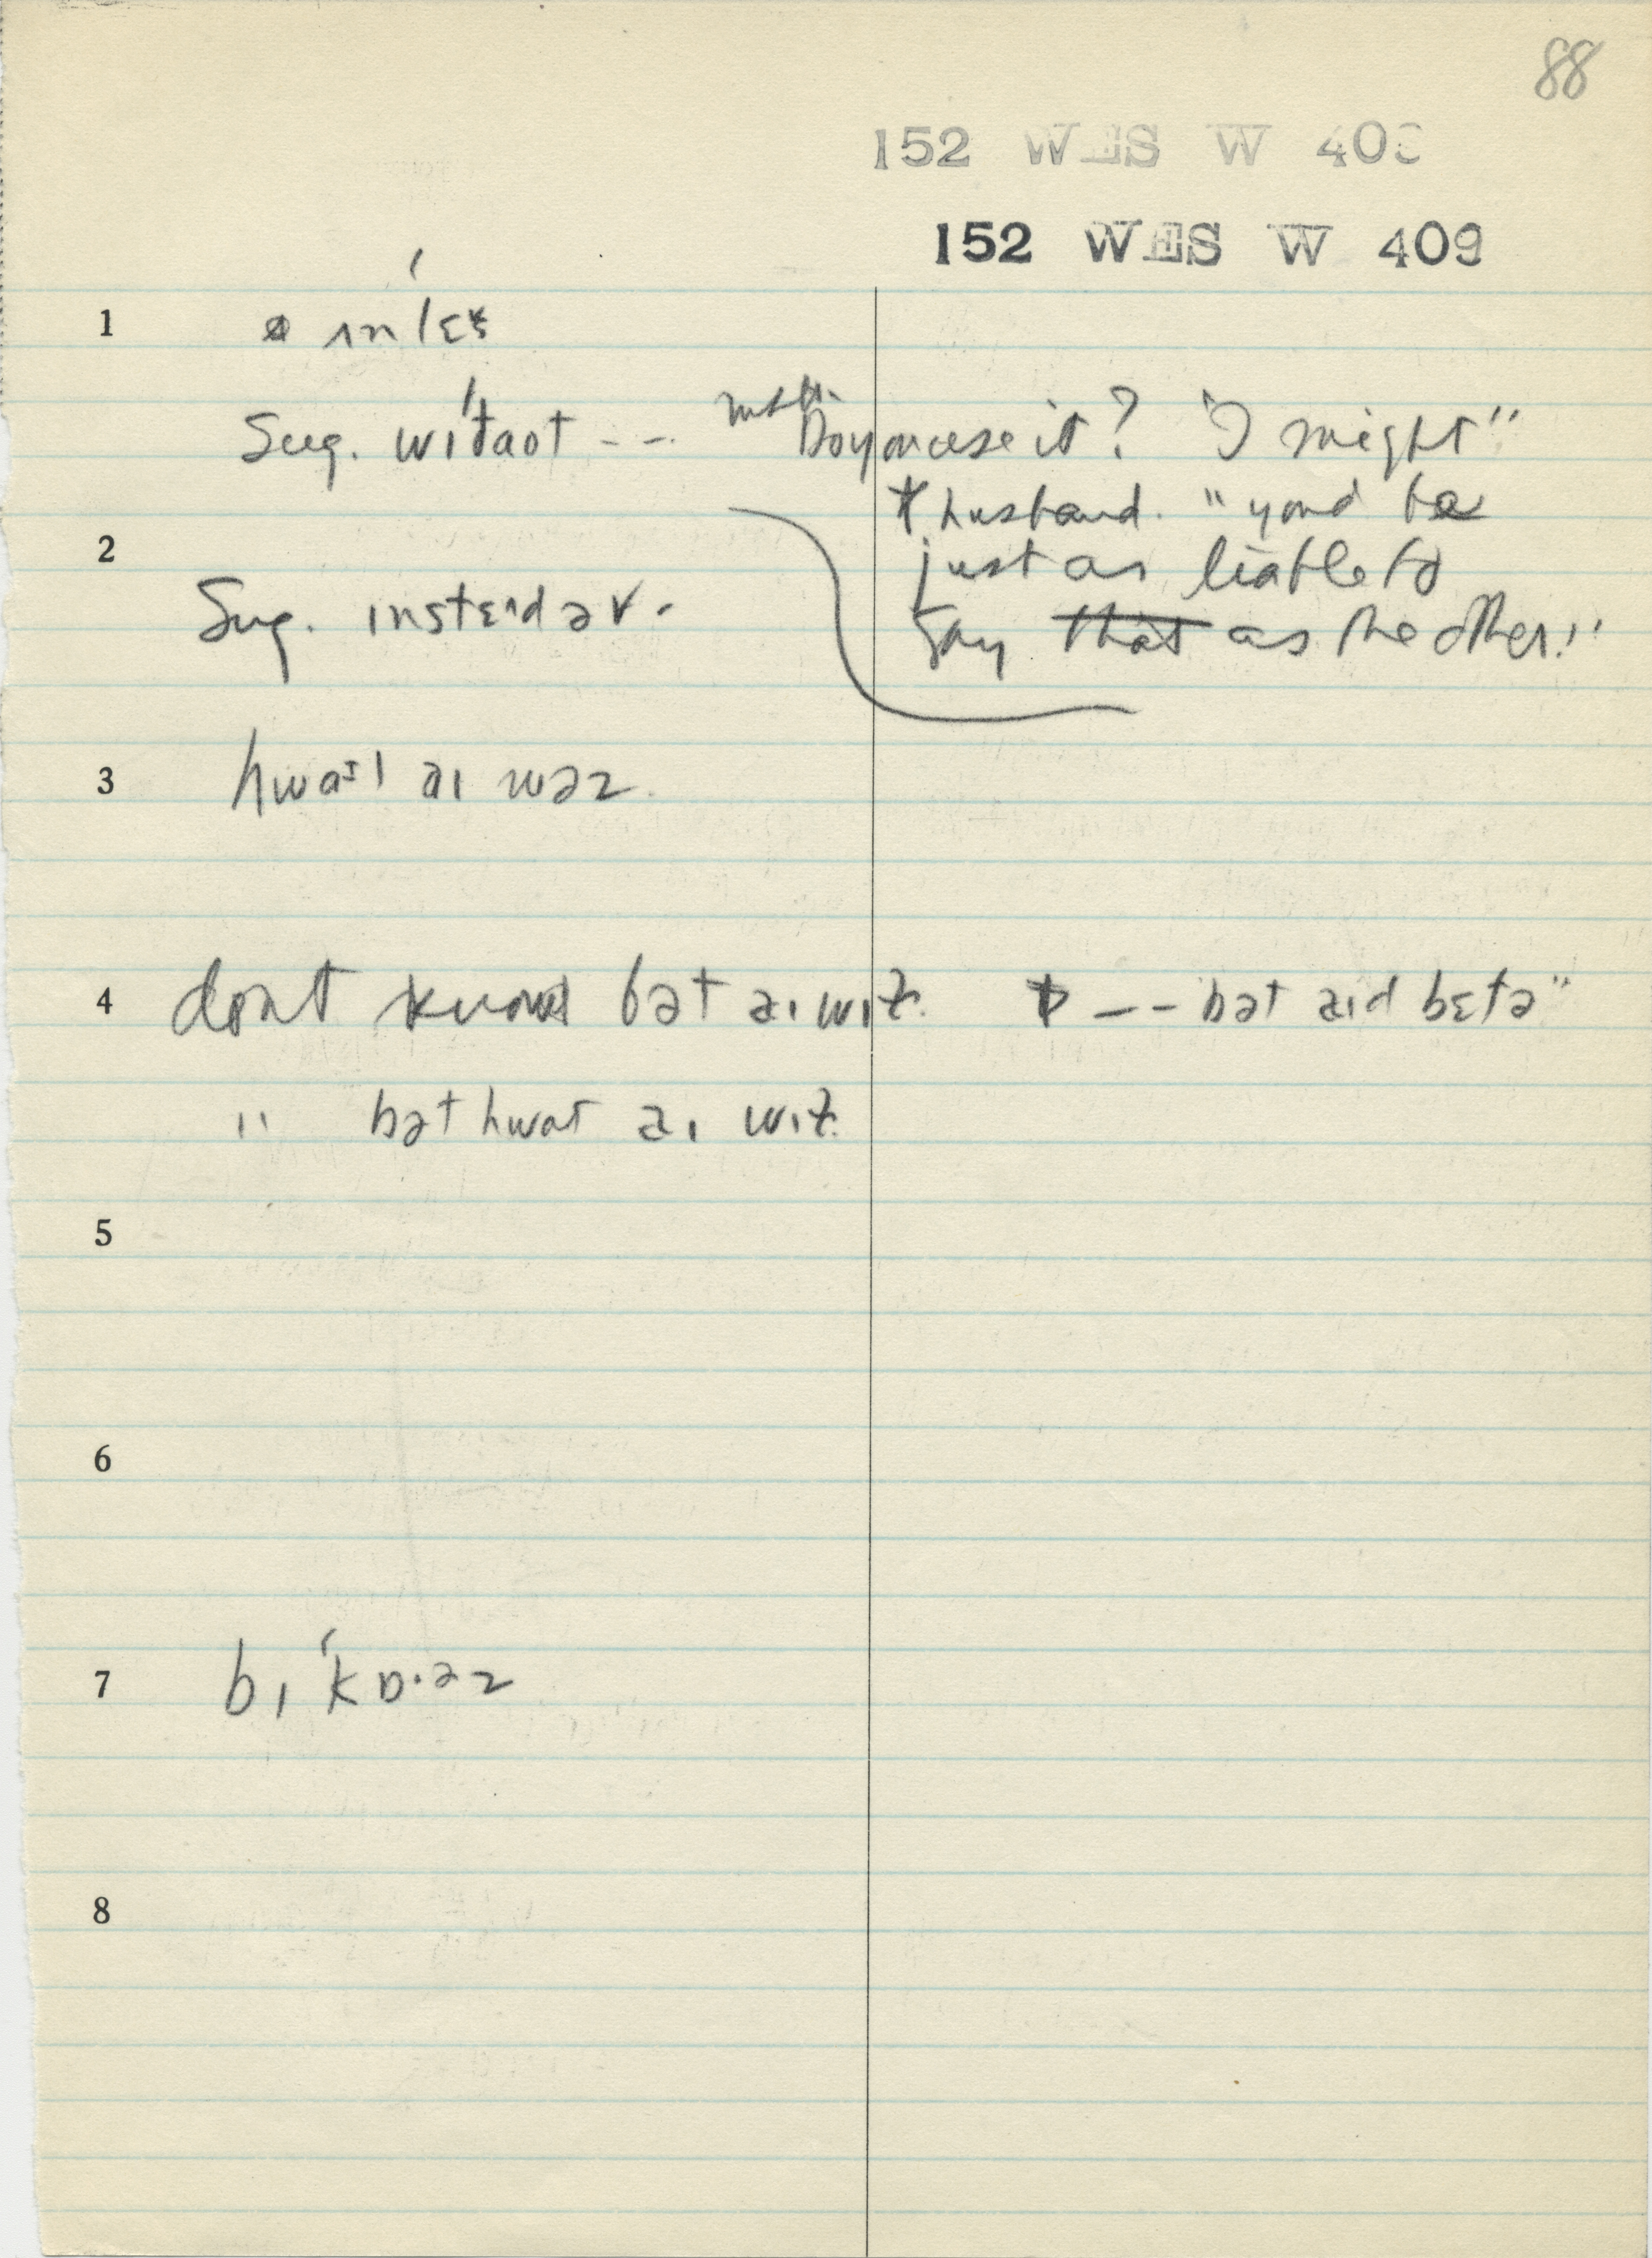 88
152 WES W 40
152 WES W 409
1 ʌnˈlɛs
Sug. wɪˈðaot --- Do you use it? "I might"
husband. "you'd be
2 just as liable to
Sug. insteɪd əv. say that as the other."
3 hwaɪl aɪ wəz
4 dont know bət aɪ wɪz -- bət aɪd betə"
" bət hwat aɪ wɪz
5
6
7 bɪˈkɒ·əz
8